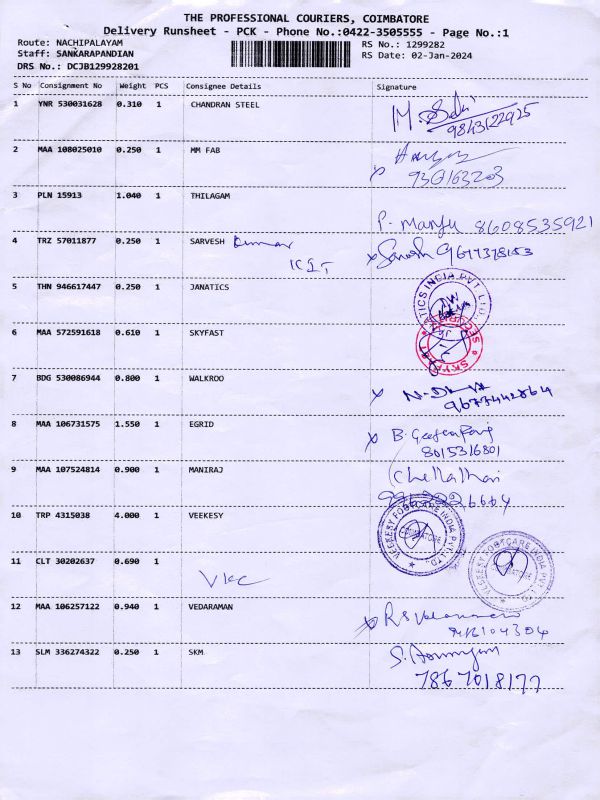 THE PROFESSIONAL COURIERS, COIMBATORE
Delivery Runsheet - PCK - Phone No.:0422-3505555 - Page No.:1
Route: NACHIPALAYAM
RS No.: 1299282
Staff: SANKARAPANDIAN
RS Date: 02-Jan-2024
DRS No.: DCJB129928201
S No Consignment No Weight PCS Consignee Details Signature
1 YNR 530031628 0.310 1 CHANDRAN STEEL
9843122925
2 MAA 108025010 0.250 1 MM FAB
3 PLN 15913 1.040 1 THILAGAM
P. Manju 8608535921
4 TRZ 57011877 0.250 1 SARVESH Kumar
KIT
5 THN 946617447 0.250 1 JANATICS
6 MAA 572591618 0.610 1 SKYFAST
7 BDG 530086944 0.800 1 WALKROO
8 MAA 106731575 1.550 1 EGRID
8015316801
9 MAA 107524814 0.900 1 MANIRAJ
10 TRP 4315038 4.000 1 VEEKESY
VEEKESY FOOTCARE INDIA PVT. LTD.
COIMBATORE
11 CLT 30202637 0.690 1
VKC
VEEKESY FOOTCARE INDIA PVT. LTD.
12 MAA 106257122 0.940 1 VEDARAMAN
13 SLM 336274322 0.250 1 SKM
7867018177